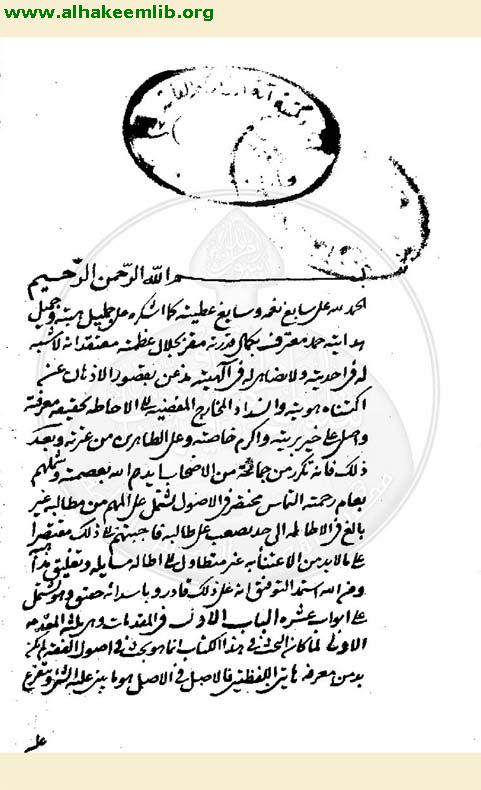 www.alhakeemlib.org
بسم الله الرّحمن الرّحيم
الحمد لله على سابغ نعمه وسابغ عطيته كما اشكره على جليل هبته وجميل
هدايته حمد معترف بكمال قدرته مقر بجلال عظمته معتقد انه لا شبيه
له فى احديته ولا مضاهى له فى الهيته مذعن بقصور الاذهان عن
اكتناه هويته وانسداد المخارج المفضية الى الاحاطة بحقيقة معرفته
واصلى على خير بريته واكرم خاصته وعلى الطاهرين من عترته وبعد
ذلك فانه تكرر من جماعة من الاصحاب ايدهم الله بعصمته وشملهم
بعام رحمته التماس مختصر فى الاصول يشتمل على المهم من مطالبه غير
بالغ فى الاطالة الى حد يصعب على طالبه فاجبتهم الى ذلك مقتصرا
على ما لا بد من الاعتناء به غير متطاول الى اطالة مسايله وتعليق
ومن الله استمد التوفيق انه على ذلك قادر وباسدائه حقيق وهو يشتمل
على ابواب عشرة الباب الاول فى المقدمات وهى ثلث المقدمة
الاولى لما كان البحث فى هذا الكتاب انما هو بحث فى اصول الفقه لم يكن
بد من معرفة هاتين اللفظتين فالاصل فى الاصل هو ما يبنى عليه الشئ ويتفرع
عليه